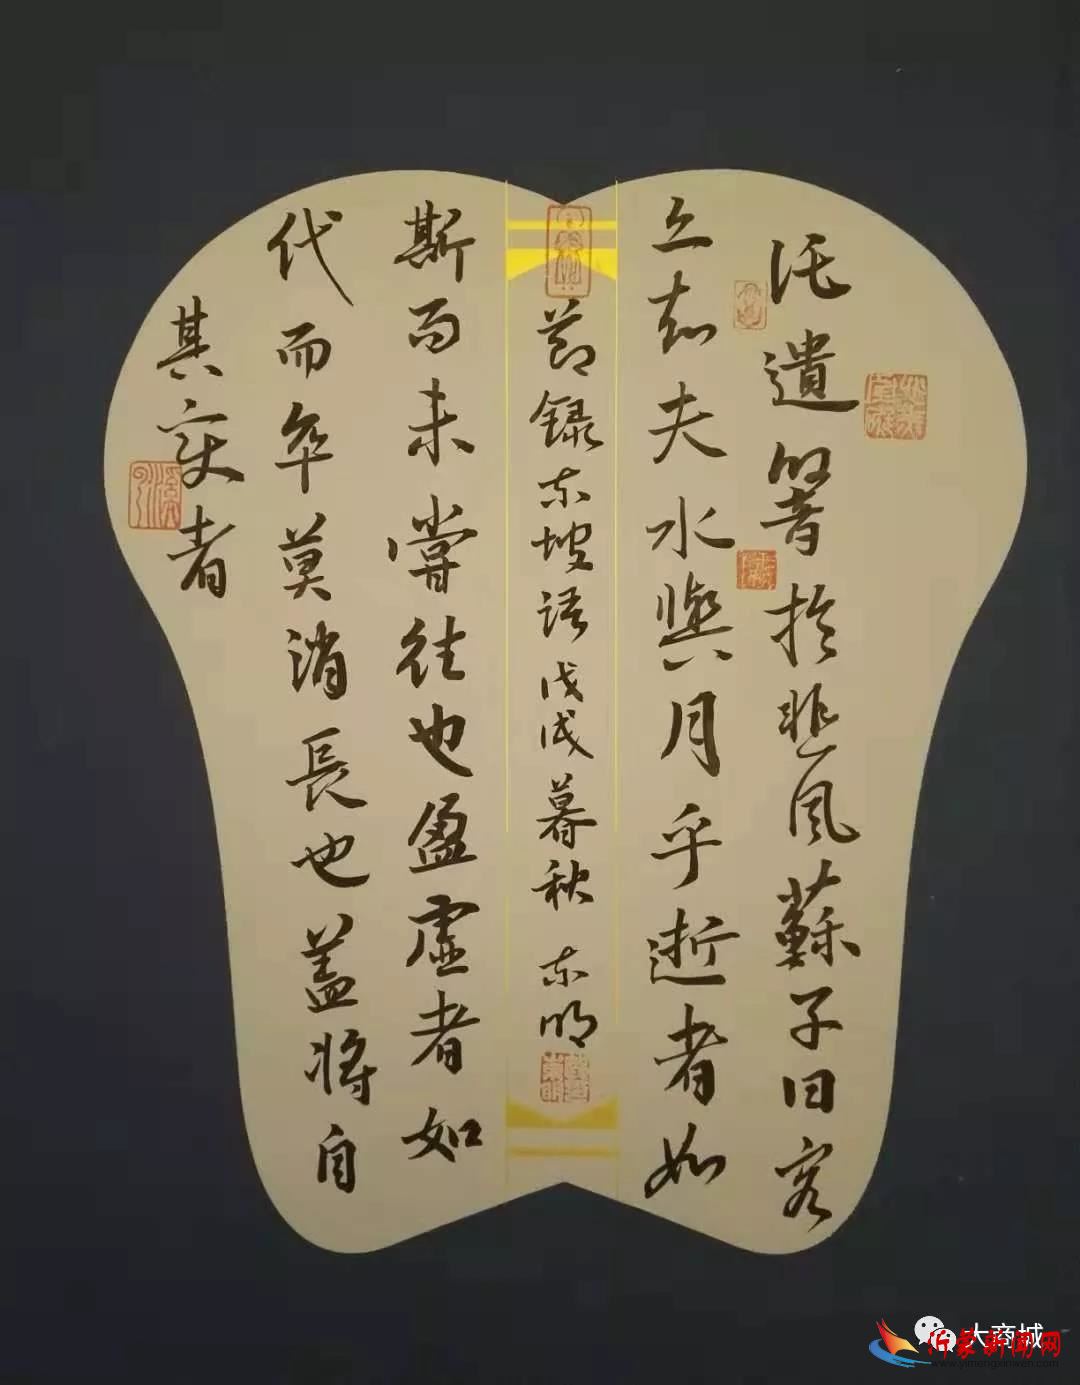 託遺響於悲風蘇子曰客
亦知夫水與月乎逝者如
斯而未嘗往也盈虛者如
代而卒莫消長也蓋將自
其变者
節録东坡语戊戌暮秋 东明
大商城
沂蒙新闻网
www.yimengxinwen.com